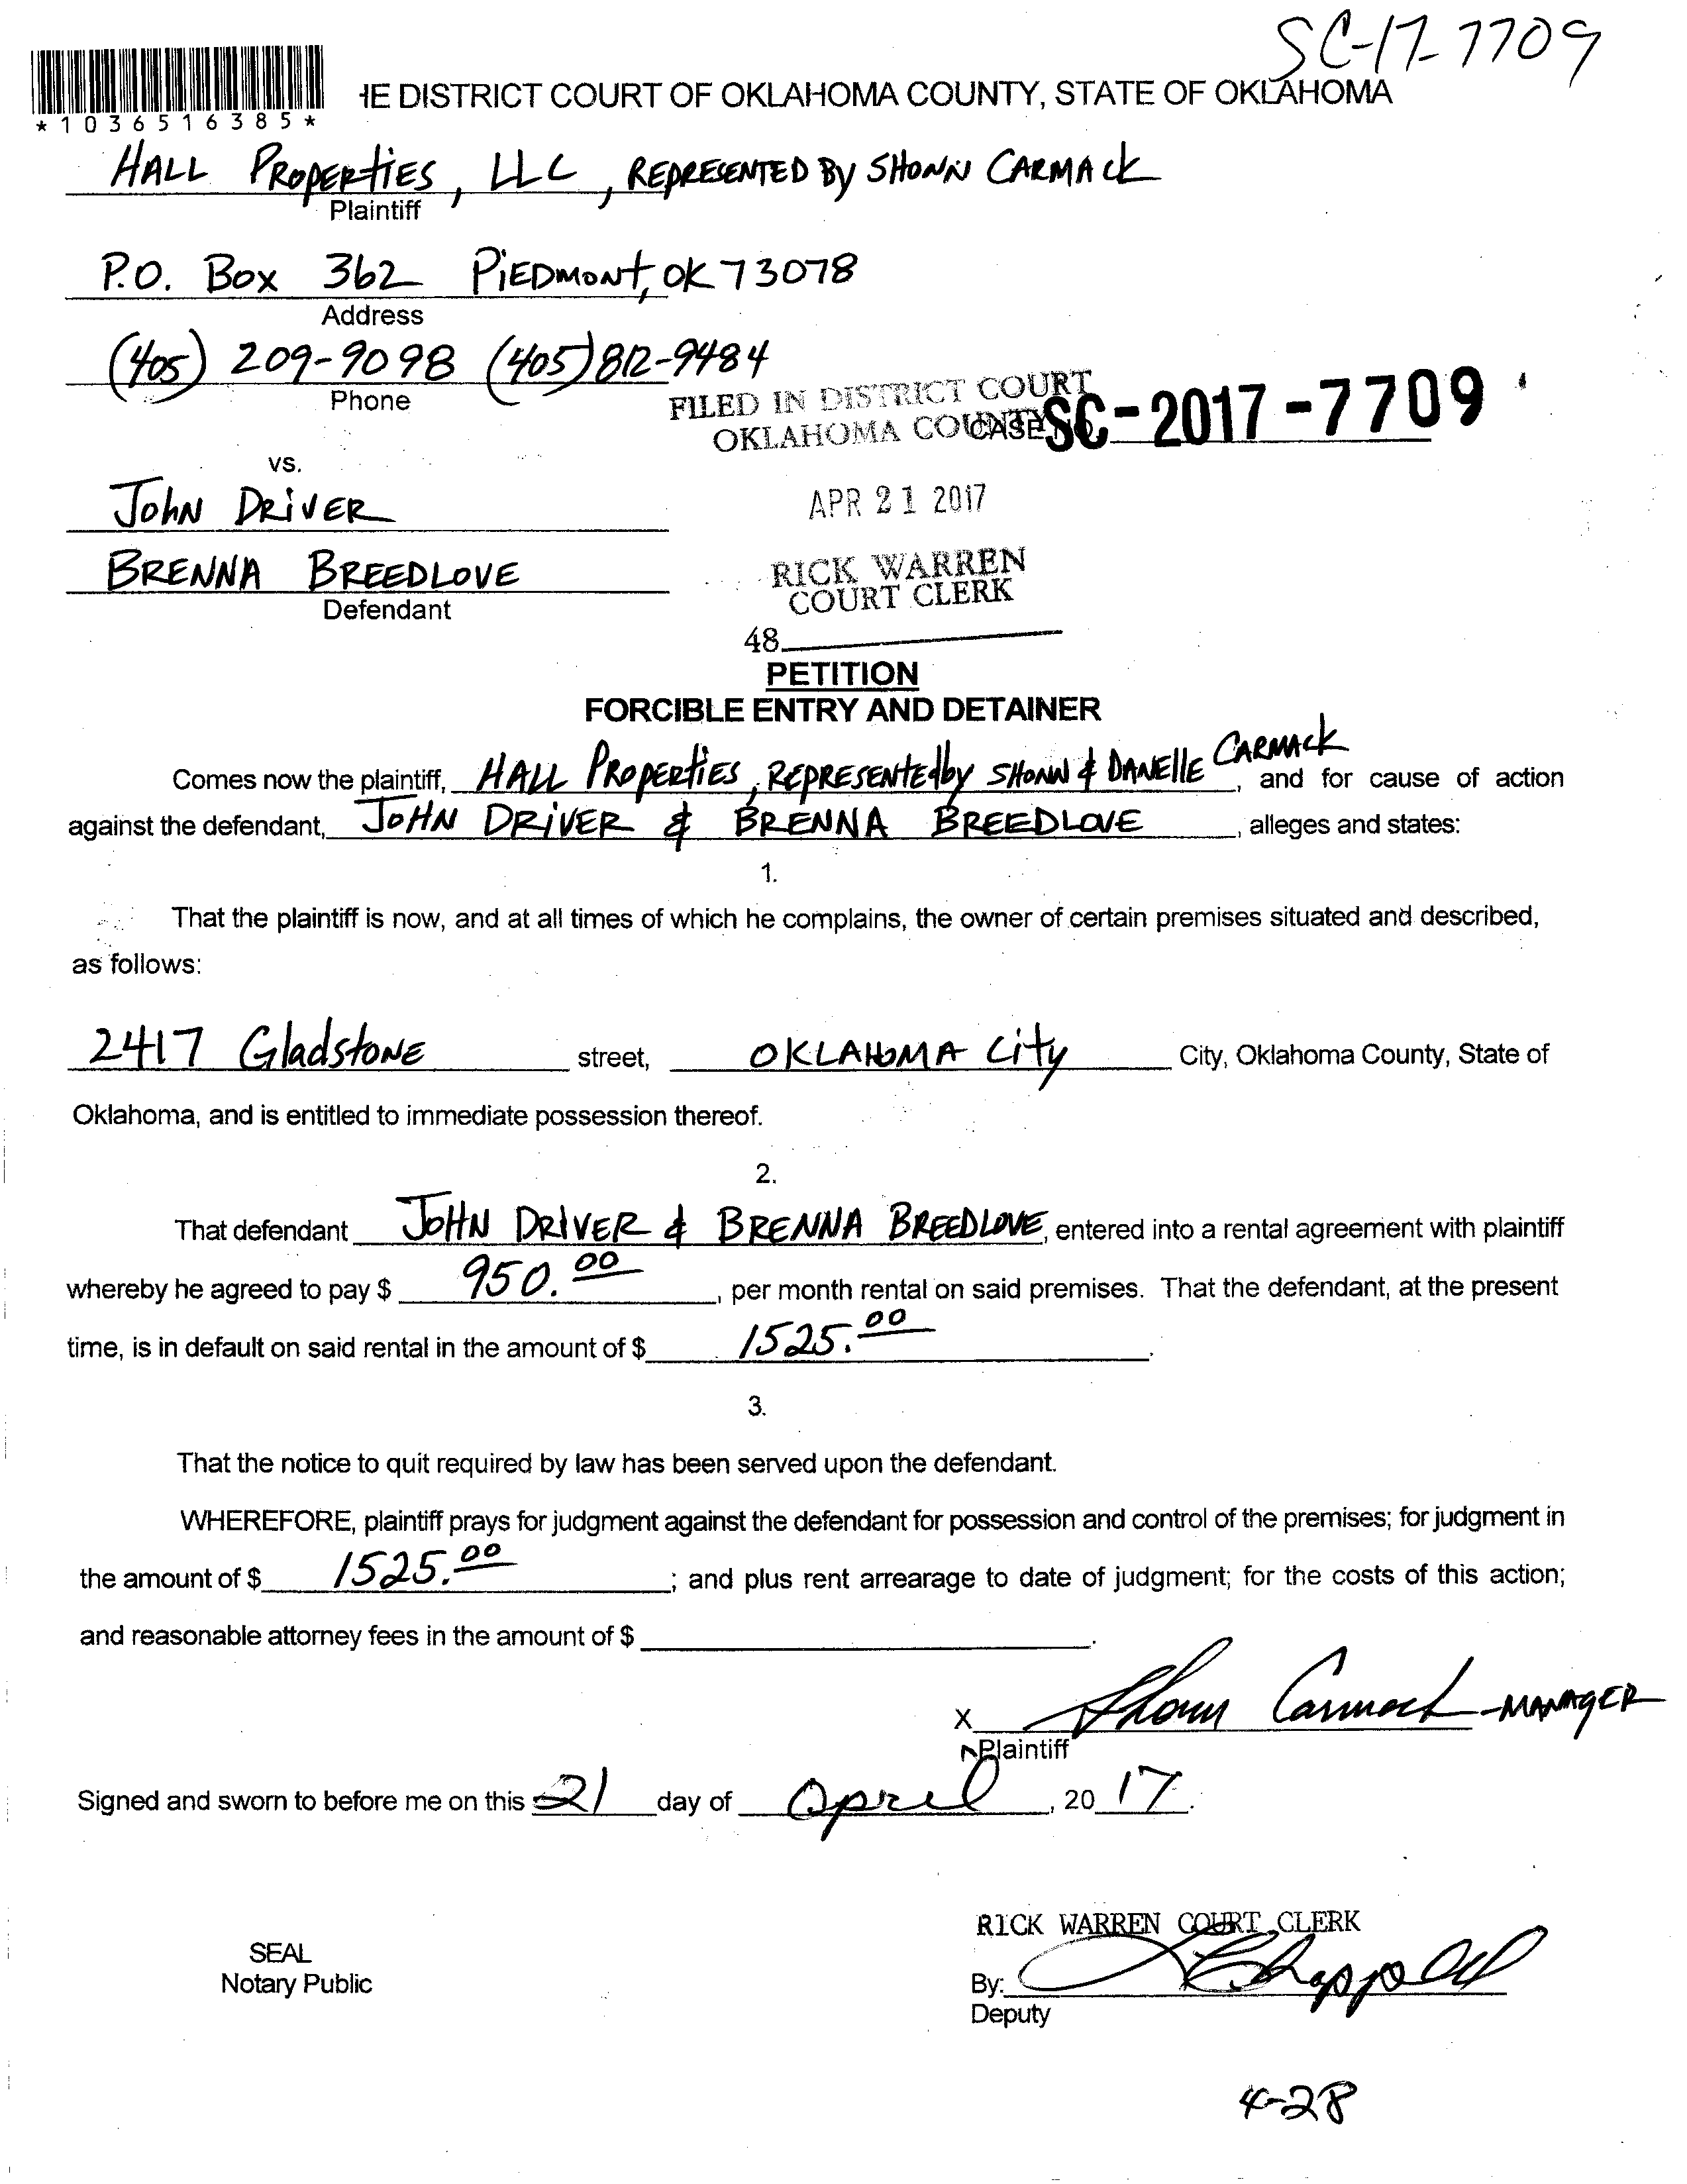 SC-17-7709
*1036516385*
HE DISTRICT COURT OF OKLAHOMA COUNTY, STATE OF OKLAHOMA
HALL PROPERTIES, LLC, REPRESENTED By SHONN CARMACK
Plaintiff
P.O. Box 362 PiEDMONt, OK 73078
Address
(405) 209-9098 (405) 812-9484
Phone
FILED IN DISTRICT COURT
OKLAHOMA COUNTY
CASE NO. SC-2017-7709
vs.
JOhN DRiVER
APR 21 2017
BRENNA BREEDLOVE
Defendant
RICK WARREN
COURT CLERK
48
PETITION
FORCIBLE ENTRY AND DETAINER
Comes now the plaintiff, HALL PROPERtiES, REPRESENtEd by SHONN & DANEllE CARMACK, and for cause of action
against the defendant, JOHN DRiVER & BRENNA BREEDLOVE, alleges and states:
1.
That the plaintiff is now, and at all times of which he complains, the owner of certain premises situated and described,
as follows:
2417 GladstONE street, OKLAHOMA City City, Oklahoma County, State of
Oklahoma, and is entitled to immediate possession thereof.
2.
That defendant JOHN DRIVER & BRENNA BREEDLOVE, entered into a rental agreement with plaintiff
whereby he agreed to pay $ 950.00, per month rental on said premises. That the defendant, at the present
time, is in default on said rental in the amount of $ 1525.00.
3.
That the notice to quit required by law has been served upon the defendant.
WHEREFORE, plaintiff prays for judgment against the defendant for possession and control of the premises; for judgment in
the amount of $ 1525.00; and plus rent arrearage to date of judgment; for the costs of this action;
and reasonable attorney fees in the amount of $ .
X Shonn Carmack - MANAGER
Plaintiff
Signed and sworn to before me on this 21 day of April, 2017.
RICK WARREN COURT CLERK
SEAL
Notary Public
By: Chappell
Deputy
4-28